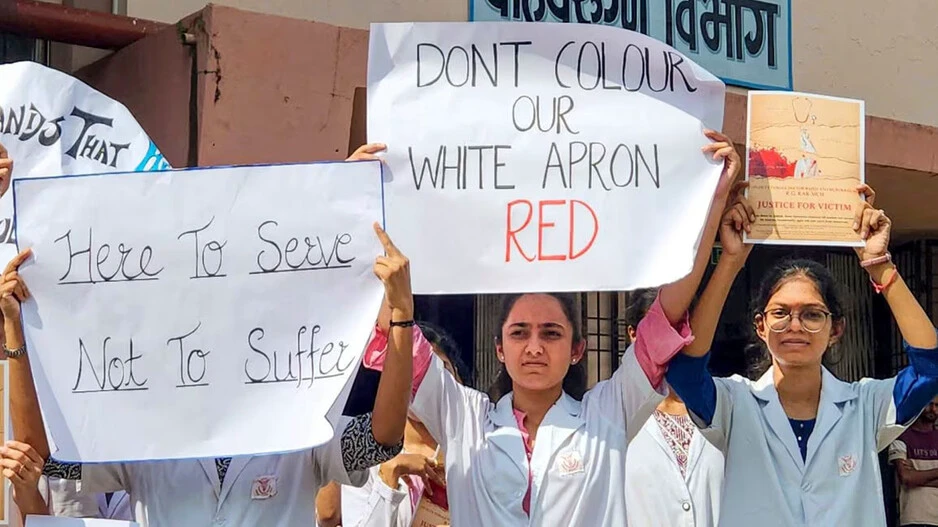 बाह्यरुग्ण विभाग
DONT COLOUR
OUR
WHITE APRON
RED
ANDS THAT
Here To Serve
Not To Suffer
JUSTICE FOR VICTIM